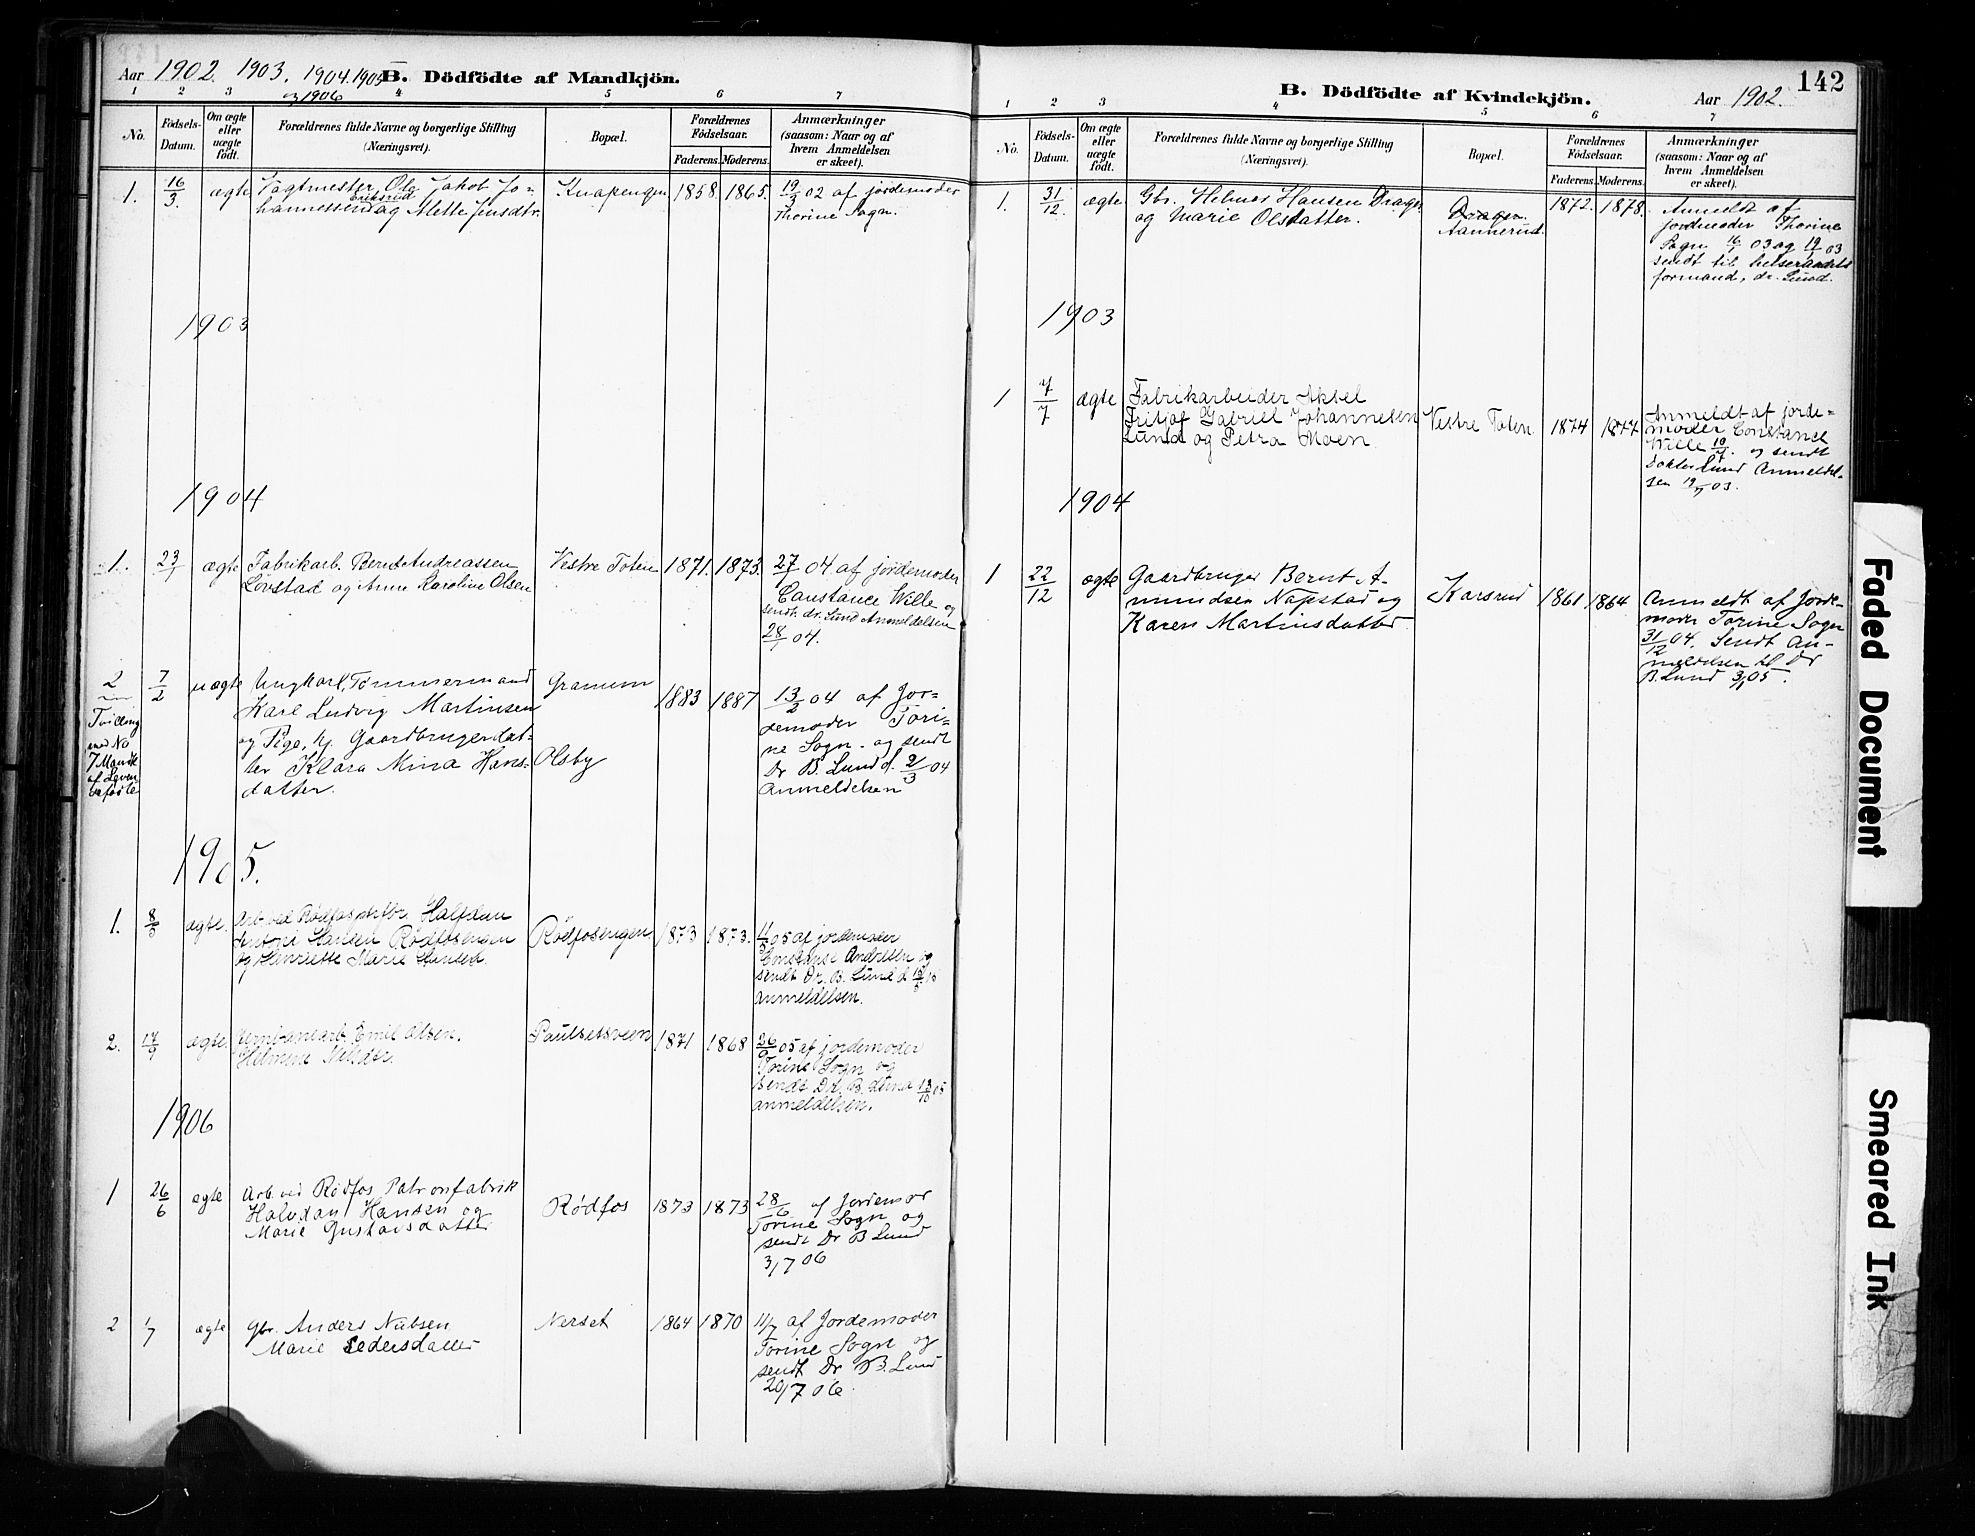 Aar 1902. 1903. 1904. 1905 og 1906
B. Dödfödte af Mandkjön.
1 2 3 4 5 6 7
No.
Födsels-Datum.
Om ægte eller uægte födt.
Forældrenes fulde Navne og borgerlige Stilling
(Næringsvei).
Bopæl.
Forældrenes Födselsaar.
Faderens. Moderens.
Anmærkninger
(saasom: Naar og af
hvem Anmeldelsen
er skeet).
1. 16/3 ægte Vagtmester Ole Jakob Jo-
Eriksrud
hannessen og Mette Jensdtr.
Knapengen 1858. 1865.
19/3 02 af jordemoder
Thorine Sogn.
1903
1904
1. 23/1 ægte Fabrikarb. Bernt Andreassen
Lövstad og Anne Karoline Olsen
Vestre Toten 1871. 1873.
27/1 04 af jordemoder
Constance Wille og
sendt dr. Lund Anmeldelsen
28/1 04.
2 7/2 uægte Ungkarl, Tømmermand
Karl Ludvig Martinsen
og Pige, hj. Gaardbrugerdat-
ter Klara Mina Hans-
datter.
Tvilling
med No
7 Mandk
af Leven
defødte
Granum
Olsby
1883 1887
13/2 04 af Jor-
demoder Tori-
ne Sogn. og sendt
Dr B. Lund d. 2/3 04
Anmeldelsen
1905.
1. 8/5 ægte. Arb. ved Rødfos Halfdan
Hansen Rødfosengen
og Henriette Marie Hansen.
Rødfosengen 1873 1873.
11/5 05 af jordemoder
Constanse Andresen og
sendt Dr. B. Lund d
anmeldelsen.
2. 17/9 ægte. Jernbanearb. Emil Olsen.
Helmine
Paulsetsveen 1871 1868
26/9 05 af jordemoder
Torine Sogn og
sendt Dr. B. Lund 13/10 05
anmeldelsen.
1906
1 26/6 ægte Arb. ved Rødfos Patronfabrik
Halvdan Hansen og
Marie Gustavsdatter
Rødfos 1873 1873
28/6 af Jordemor
Torine Sogn og
sendt Dr B Lund
3/7 06
2 1/7 ægte Gbr. Anders Nilsen
Marie Pedersdatter
Nerset 1864 1870
11/7 af Jordemoder
Torine Sogn og
sendt Dr B. Lund
20/7 06.
142
B. Dödfödte af Kvindekjön.
Aar 1902.
1 2 3 4 5 6 7
No.
Födsels-Datum.
Om ægte eller uægte födt.
Forældrenes fulde Navne og borgerlige Stilling
(Næringsvei).
Bopæl.
Forældrenes Födselsaar.
Faderens. Moderens.
Anmærkninger
(saasom: Naar og af
hvem Anmeldelsen
er skeet).
1. 31/12. ægte Gbr. Helmer Hansen Dragen
og Marie Olsdatter.
Dragen.
Aannerud.
1872. 1878.
Anmeldt af
jordemoder Thorine
Sogn 16/1 03 og 19/1 03
sendt til helseraadets
formand, dr. Lund.
1903
1 7/7 ægte Fabrikarbeider Aksel
Fritjof Gabriel Johannesen
Lund og Petra Moen.
Vestre Toten. 1874 1877
Anmeldt af jorde-
moder Constance
Wille 19/7. og sendt
Dokter Lund Anmeldel-
sen 19/7 03.
1904
1 22/12 ægte Gaardbruger Bernt A-
mundsen Napstad og
Karen Martinsdatter
Karsrud 1861 1864
Anmeldt af Jorde-
moder Torine Sogn
31/12 04. Sendt An-
meldelsen til Dr
B. Lund 3/1 05.
Faded Document
Smeared Ink